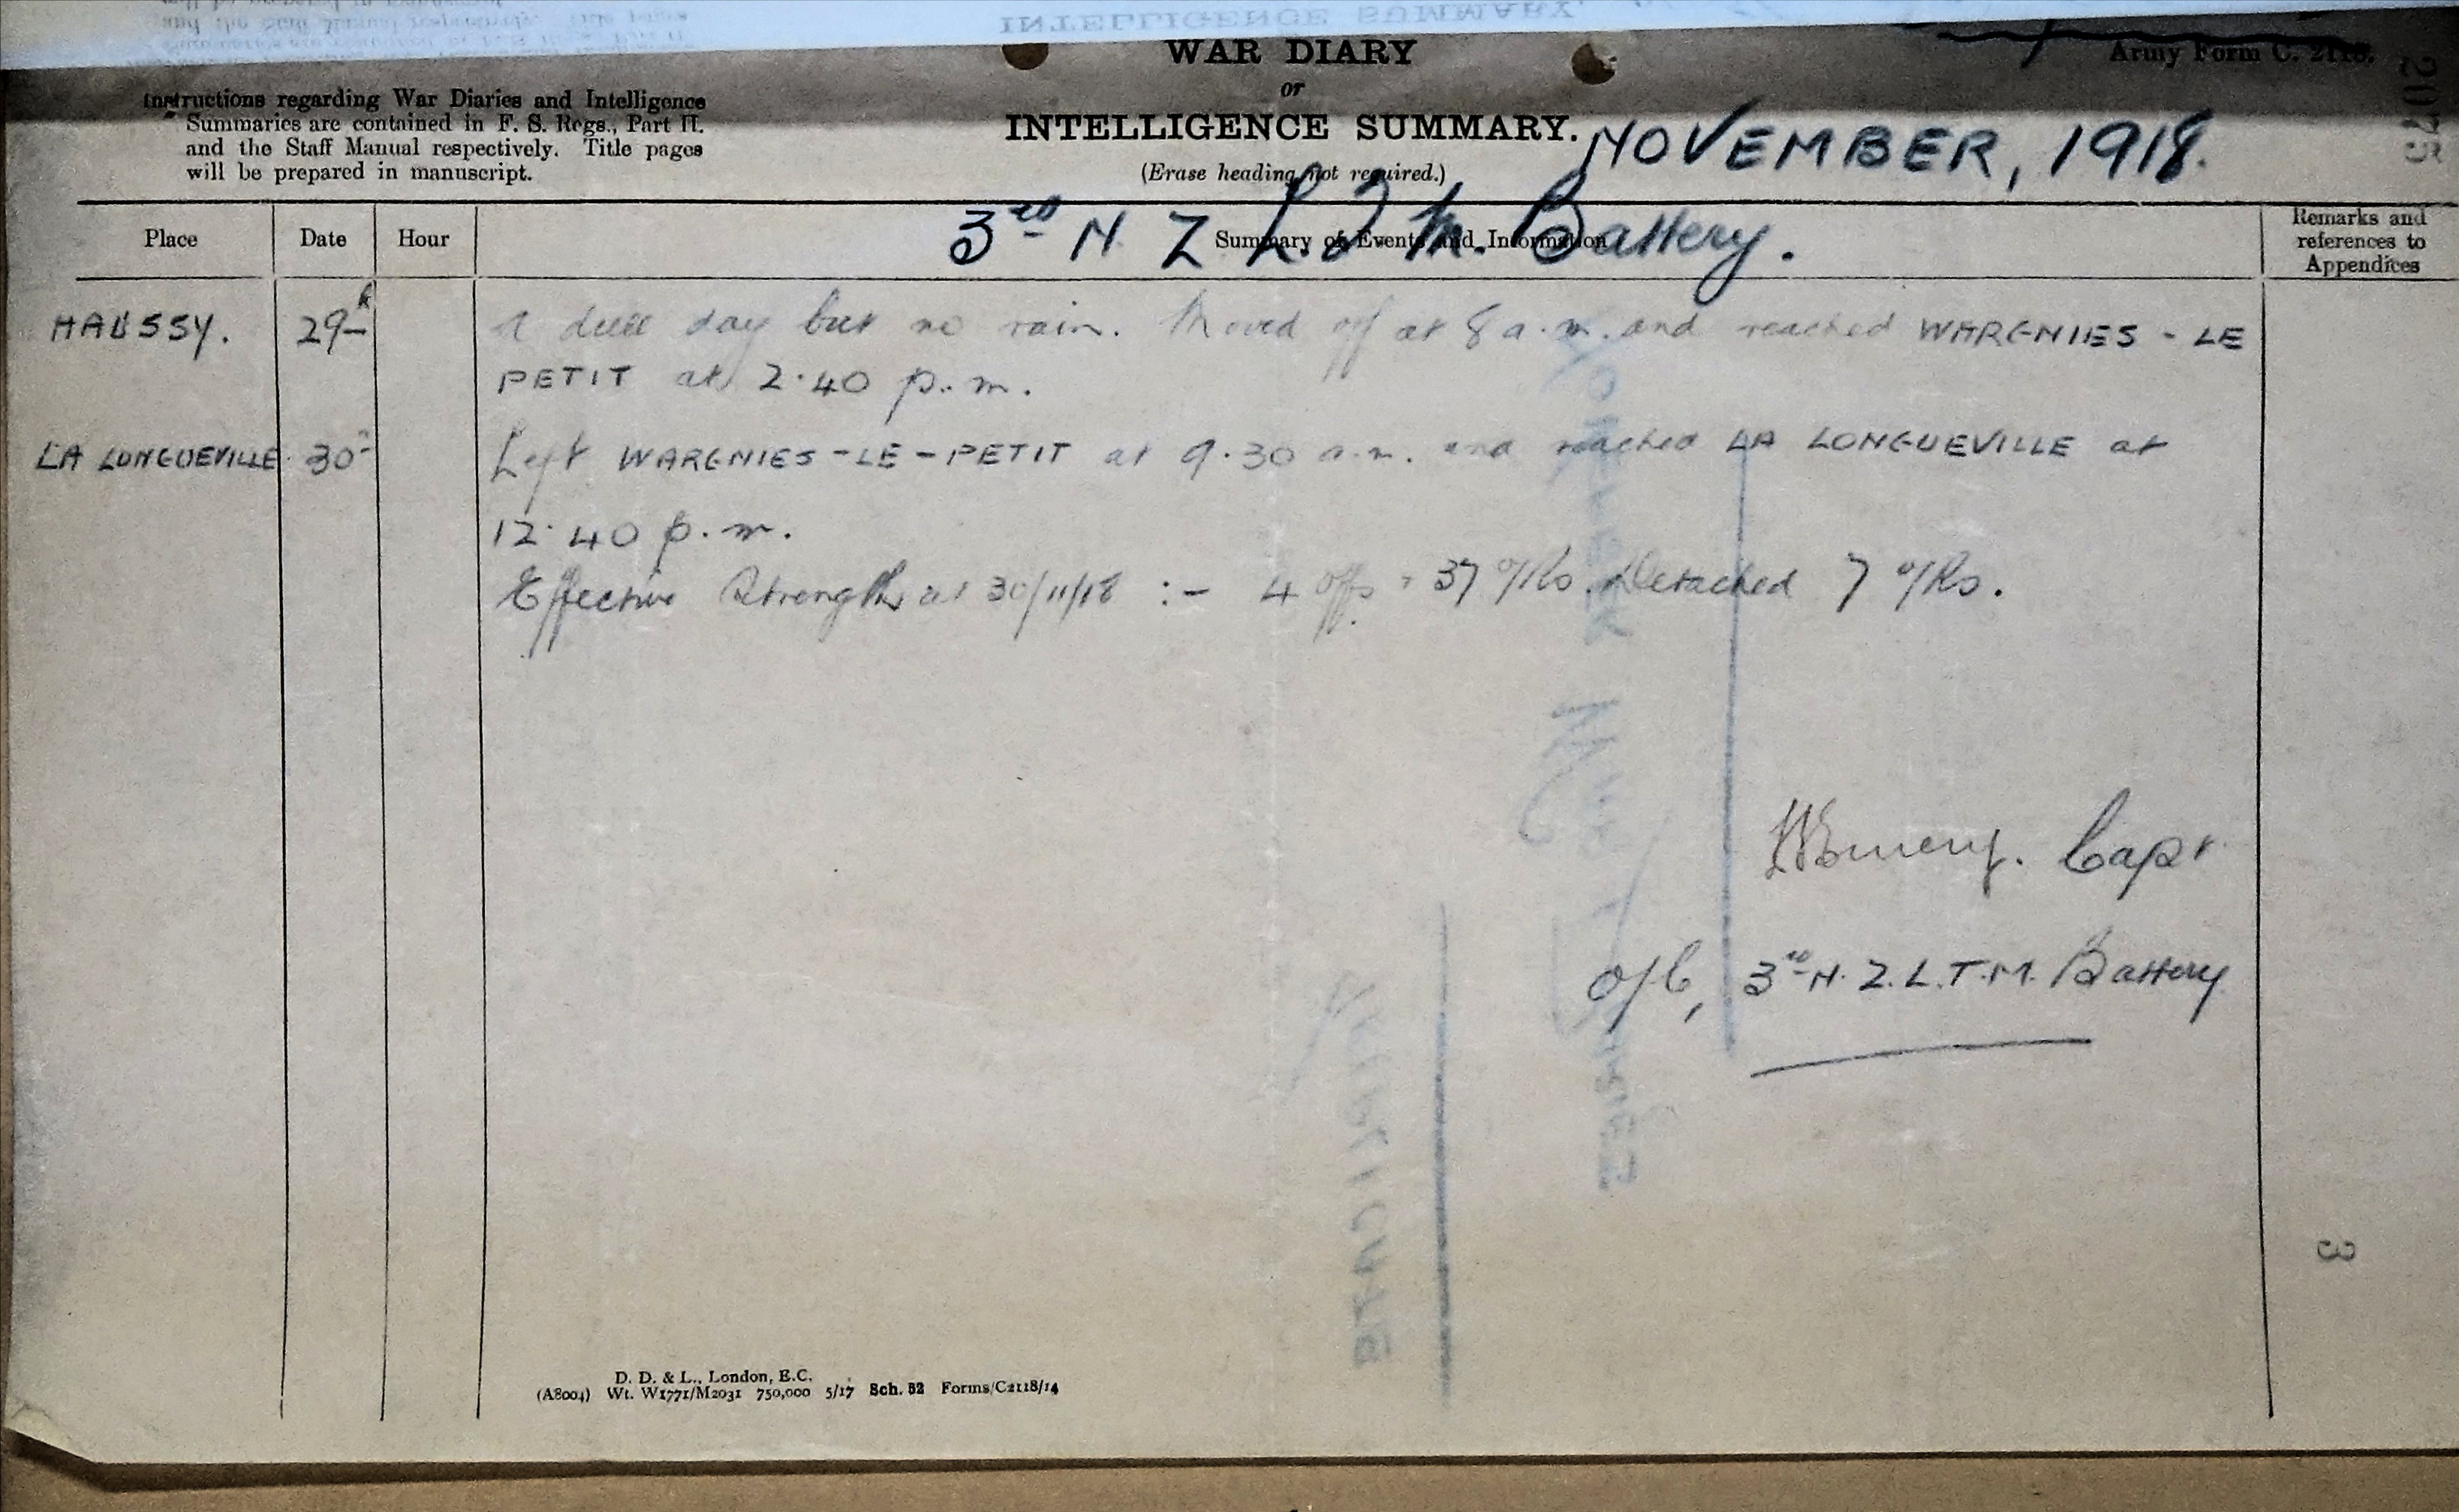 WAR DIARY
or
INTELLIGENCE SUMMARY.
(Erase heading not required.)
Army Form C. 2118.
Instructions regarding War Diaries and Intelligence
Summaries are contained in F. S. Regs., Part II.
and the Staff Manual respectively. Title pages
will be prepared in manuscript.
NOVEMBER, 1918.
3rd N Z L.T.M. Battery.
Place Date Hour Summary of Events and Information Remarks and
references to
Appendices
HAUSSY. 29th A dull day but no rain. Moved off at 8 a.m. and reached WARGNIES - LE
PETIT at 2.40 p.m.
LA LONGUEVILLE 30th Left WARGNIES-LE-PETIT at 9.30 a.m. and reached LA LONGUEVILLE at
12.40 p.m.
Effective Strength at 30/11/18 :- 4 offs 37 O/Rs. Detached 7 O/Rs.
Capt
O/C, 3rd N.Z.L.T.M. Battery
3
D. D. & L., London, E.C.
(A8004) Wt. W1771/M2031 750,000 5/17 Sch. 52 Forms/C2118/14